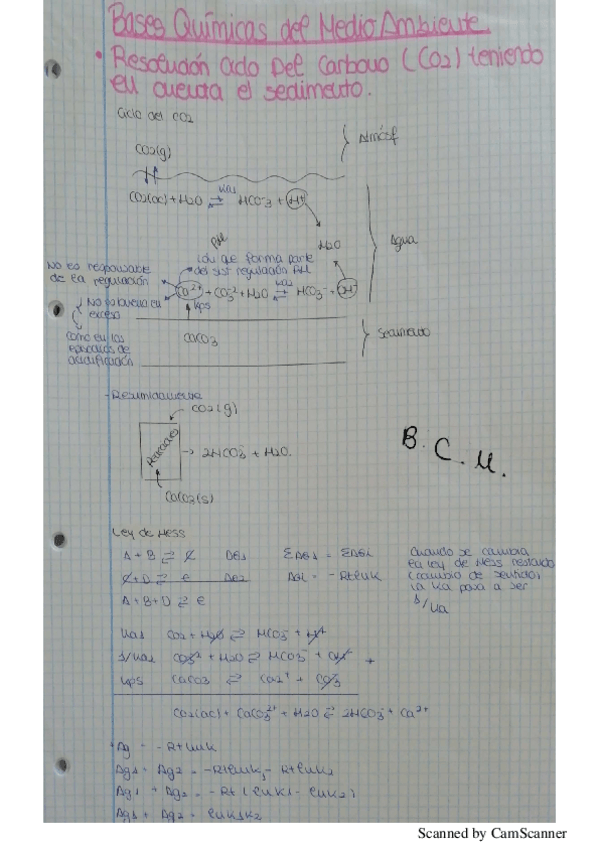 Bases Químicas del Medio Ambiente
• Resolución Ciclo Del Carbono (CO2) teniendo
en cuenta el sedimento.
Ciclo del CO2
CO2(g)
Atmósf
CO2(ac) + H2O ⇌ HCO-3 + H+
Ka1
Agua
pH
H2O
Ión que forma parte
del sist regulación pH
No es responsable
de la regulación
Ca2+ + CO3 2- + H2O ⇌ HCO3- + OH-
Ka2
Kps
No se
exceso
como en los
episodios de
acidificación
CaCO3
Sedimento
- Resumidamente
CO2(g)
Reacciones
→ 2HCO3- + H2O.
CaCO3(s)
B. C. M.
Ley de Hess
A + B ⇌ C ΔG1 ΣΔG1 = ΣΔGi
C + D ⇌ E ΔG2 ΔGi = -RtLnK
A + B + D ⇌ E
Cuando se cambia
en ley de Hess restando
(cambio de sentido)
la Ka pasa a ser
1/Ka
Ka1 CO2 + H2O ⇌ HCO3- + H+
1/Ka2 CO3 2- + H2O ⇌ HCO3- + OH- +
Kps CaCO3 ⇌ Ca2+ + CO3
CO2(ac) + CaCO3 2+ + H2O ⇌ 2HCO3- + Ca2+
Δg = -RtLnK
Δg1 + Δg2 = -RtLnK1 - RtLnK2
Δg1 + Δg2 = -Rt (LnK1 - LnK2)
Δg1 + Δg2 = LnK1K2
Scanned by CamScanner